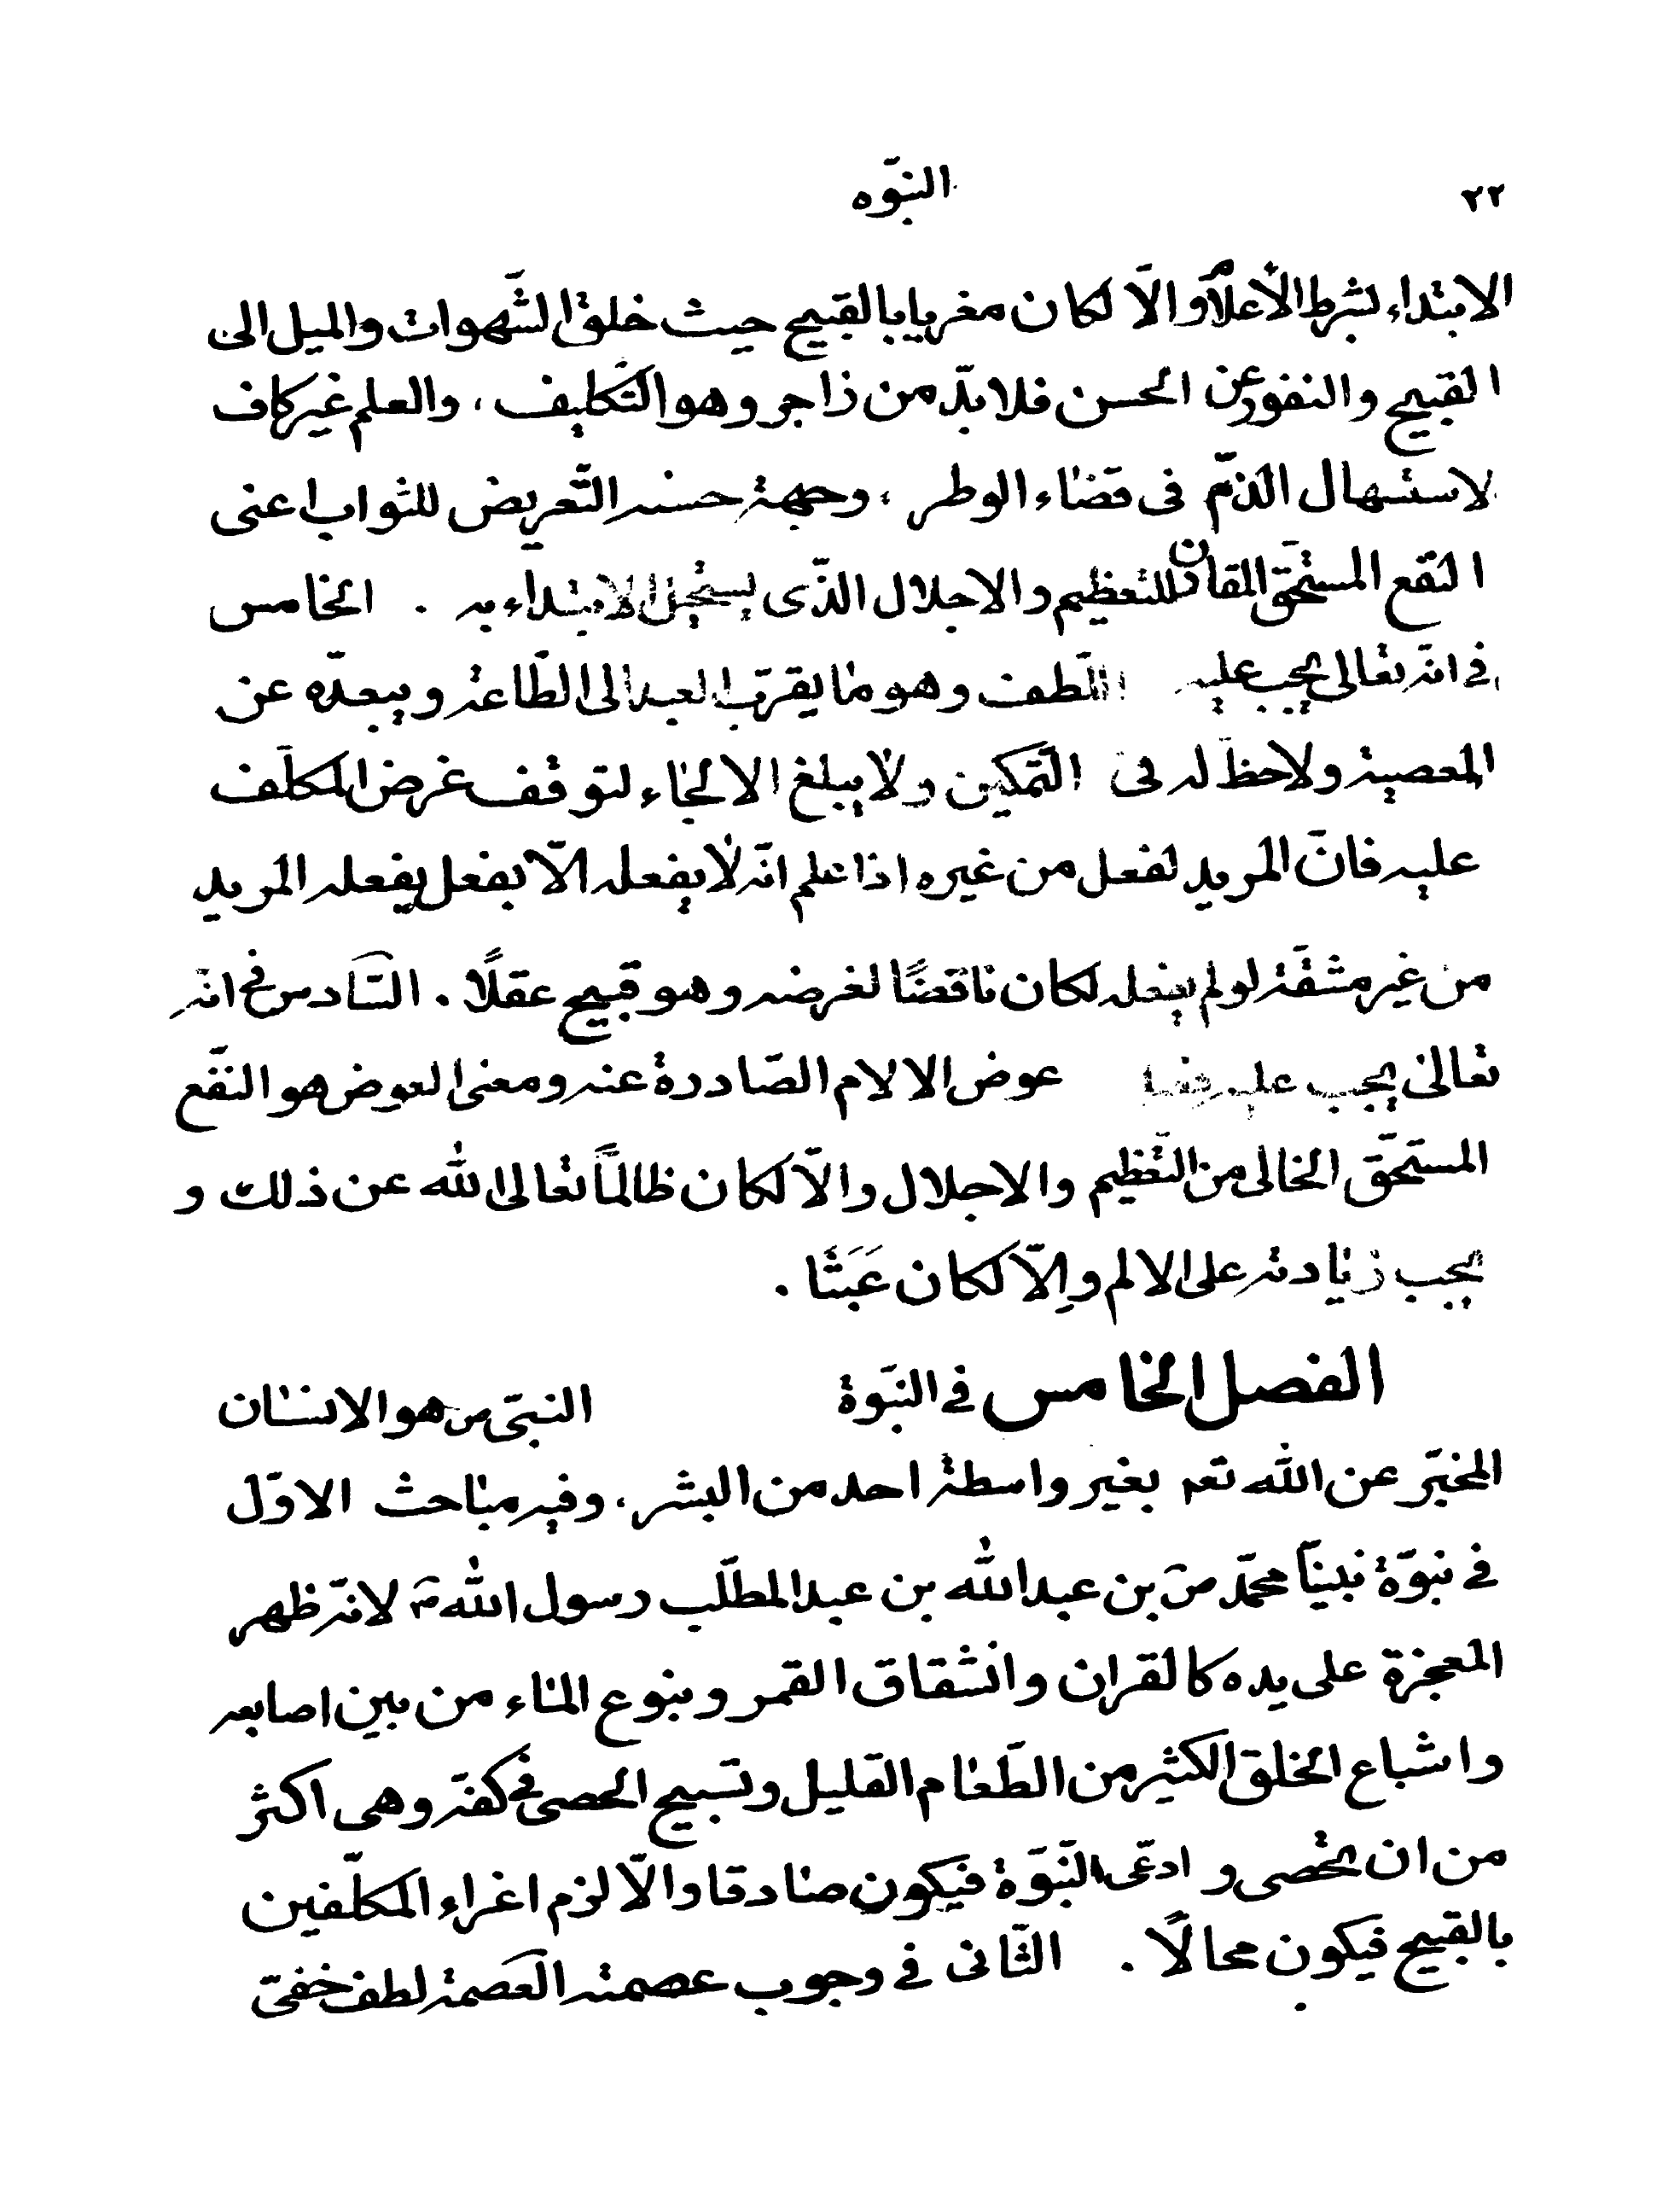 ٢٢
النبّوه
الابتداء بشرط الأعلام والاّ لكان مغريا بالقبيح حيث خلق الشّهوات والميل الى
القبيح والنفور عن الحسن فلابدّ من زاجر وهو التّكليف ، والعلم غير كاف
لاستسهال الذمّ فى قضاء الوطر ، وجهة حسنه التّعريض للثواب اعنى
النّفع المستحقّ المقارن للتعظيم والاجلال الذّى يستحيل الابتداء به . الخامس
فى انّه تعالى يجب عليه اللّطف وهو ما يقرّب العبد الى الطّاعة ويبعدّه عن
المعصية ولا حظّ له فى التّمكين ولا يبلغ الالجاء لتوقف غرض المكلّف
عليه فانّ المريد لفعل من غيره اذا علم انّه لا يفعله الاّ بفعل يفعله المريد
من غير مشقّة لو لم يفعله لكان ناقضًا لغرضه وهو قبيح عقلًا . السّادس فى انّه
تعالى يجب عليه فعل عوض الالام الصّادرة عنه ومعنى العوض هو النفّع
المستحّق الخالى من التّعظيم والاجلال والاّ لكان ظالمًا تعالى الله عن ذلك و
يجب زيادته على الالم وإلاّ لكان عَبَثًا .
الفصل الخامس فى النبّوة النبىّ ص هو الانسان
المخبّر عن الله تعم بغير واسطة احد من البشر ، وفيه مباحث الاوّل
فى نبوّة نبينّا محمّد ص بن عبدالله بن عبدالمطلّب رسول الله ص لانّه ظهر
المعجزة على يده كالقران وانشقاق القمر وبنوع الماء من بين اصابعه
واشباع الخلق الكثير من الطّعام القليل وتسبيح الحصى فى كفّه وهى اكثر
من ان تحصى و ادعّى النّبوّة فيكون صادقا والاّ لزم اغراء المكلّفين
بالقبيح فيكون محالًا . الثّانى فى وجوب عصمته العصمة لطف خفىّ